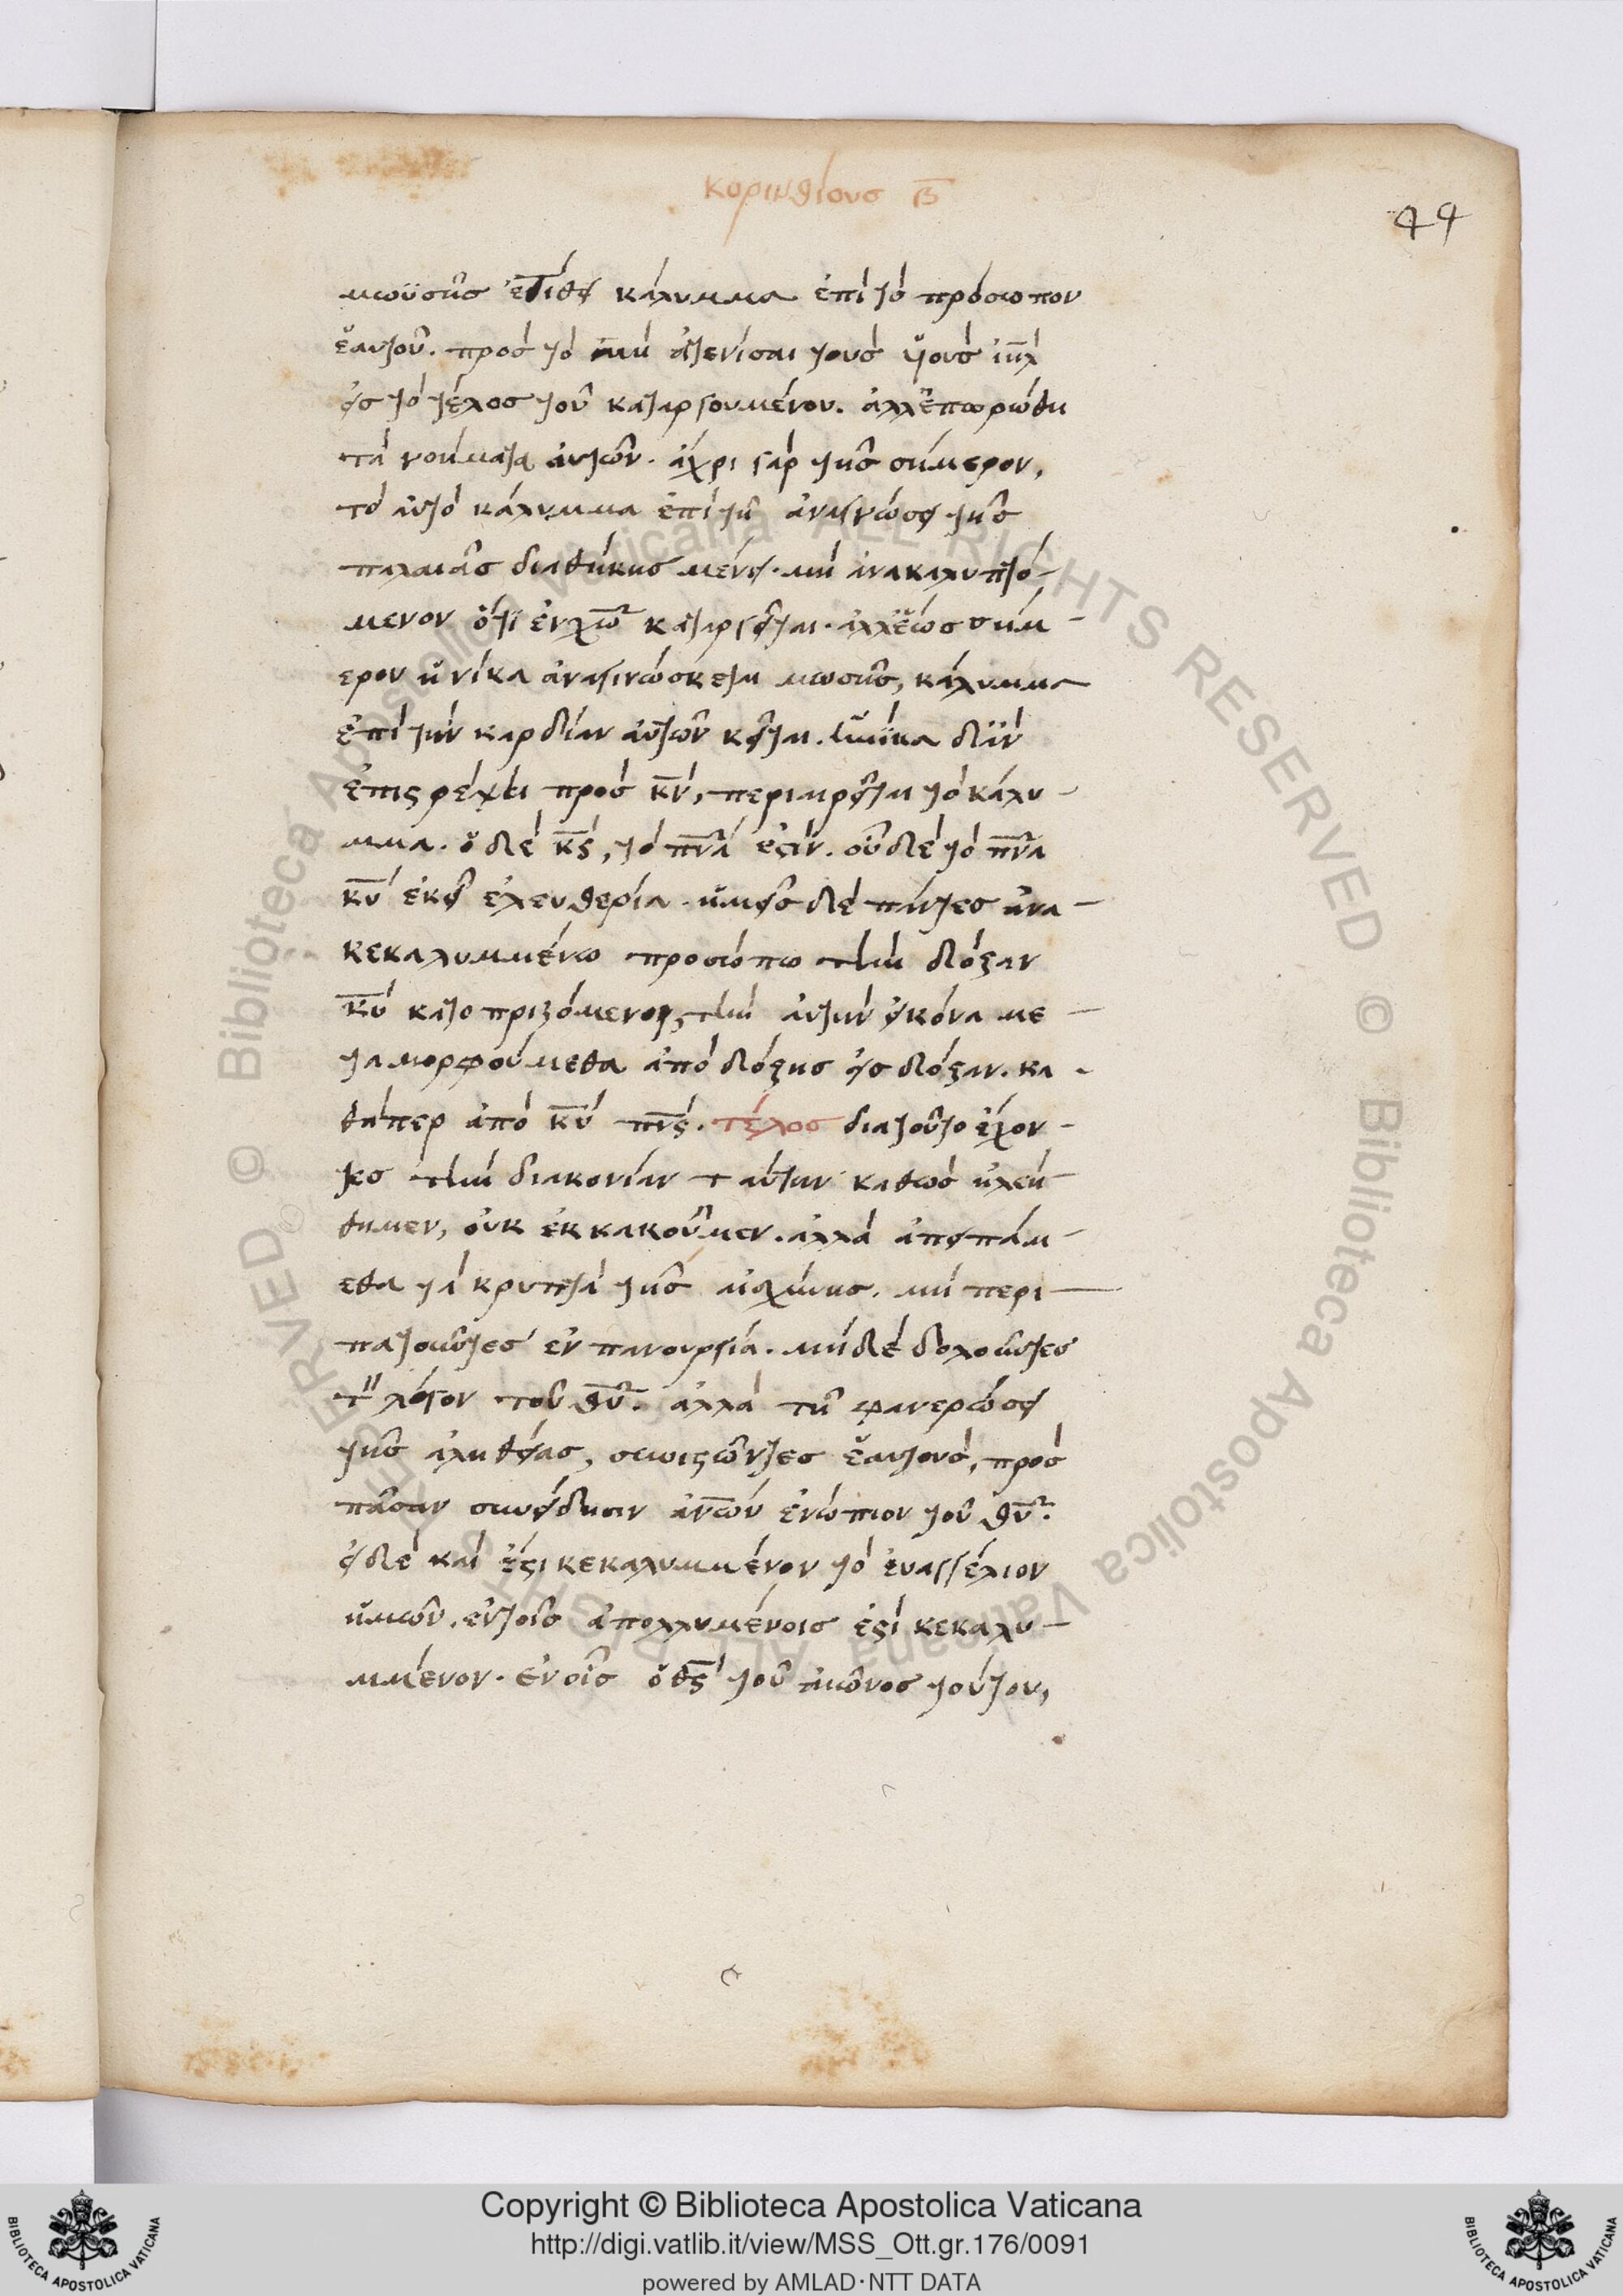 κορινθίους β̅
44
μωϋσῆς ἐτίθει κάλυμμα ἐπὶ τὸ πρόσωπον
ἑαυτοῦ. πρὸς τὸ μὴ ἀτενίσαι τοὺς υἱοὺς ι̅η̅λ̅
εἰς τὸ τέλος τοῦ καταργουμένου. ἀλλ' ἐπωρώθη
τὰ νοήματα αὐτῶν. ἄχρι γὰρ τῆς σήμερον,
τὸ αὐτὸ κάλυμμα ἐπὶ τῆ ἀναγνώσει τῆς
παλαιᾶς διαθήκης μένει. μὴ ἀνακαλυπτό-
μενον ὅτι ἐν χ̅ω̅ καταργεῖται. ἀλλ' ἕως σήμ-
ερον ἡνίκα ἀναγινώσκεται μωσῆς, κάλυμμα
ἐπὶ τὴν καρδίαν αὐτῶν κεῖται. ἡνίκα δ' ἂν
ἐπιστρέψει πρὸς κ̅ν̅, περιαιρεῖται τὸ κάλυ-
μμα. ὁ δὲ κ̅ς̅, τὸ π̅ν̅α̅ ἐστίν. οὗ δὲ τὸ π̅ν̅α̅
κ̅υ̅ ἐκεῖ ἐλευθερία. ἡμεῖς δὲ πάντες ἀνα-
κεκαλυμμένω προσώπω τὴν δόξαν
κ̅υ̅ κατοπριζόμενοι, τὴν αὐτὴν εἰκόνα με-
ταμορφούμεθα ἀπὸ δόξης εἰς δόξαν. κα-
θάπερ ἀπὸ κ̅υ̅ π̅ν̅ς̅. τέλος διατοῦτο ἔχον-
τες τὴν διακονίαν ταύτην καθὼς ἠλεή-
θημεν, οὐκ ἐκκακοῦμεν. ἀλλὰ ἀπειπάμ-
εθα τὰ κρυπτὰ τῆς αἰσχύνης. μὴ περι-
πατοῦντες ἐν πανουργία. μηδὲ δολοῦντες
τὸν λόγον τοῦ θ̅υ̅. ἀλλὰ τῆ φανερώσει
τῆς ἀληθείας, συνιστῶντες ἑαυτοὺς, πρὸς
πᾶσαν συνείδησιν ἀν̅ων̅ ἐνώπιον τοῦ θ̅υ̅.
εἰ δὲ καὶ ἔστι κεκαλυμμένον τὸ εὐαγγέλιον
ἡμῶν. ἐν τοῖς ἀπολλυμένοις ἐστὶ κεκαλυ-
μμένον. ἐν οἷς ὁ θ̅ς̅ τοῦ αἰῶνος τούτου,
Copyright © Biblioteca Apostolica Vaticana
http://digi.vatlib.it/view/MSS_Ott.gr.176/0091
powered by AMLAD·NTT DATA
BIBLIOTECA APOSTOLICA VATICANA
BIBLIOTECA APOSTOLICA VATICANA
© Biblioteca Apostolica Vaticana ALL RIGHTS RESERVED © Biblioteca Apostolica Vaticana ALL RIGHTS RESERVED